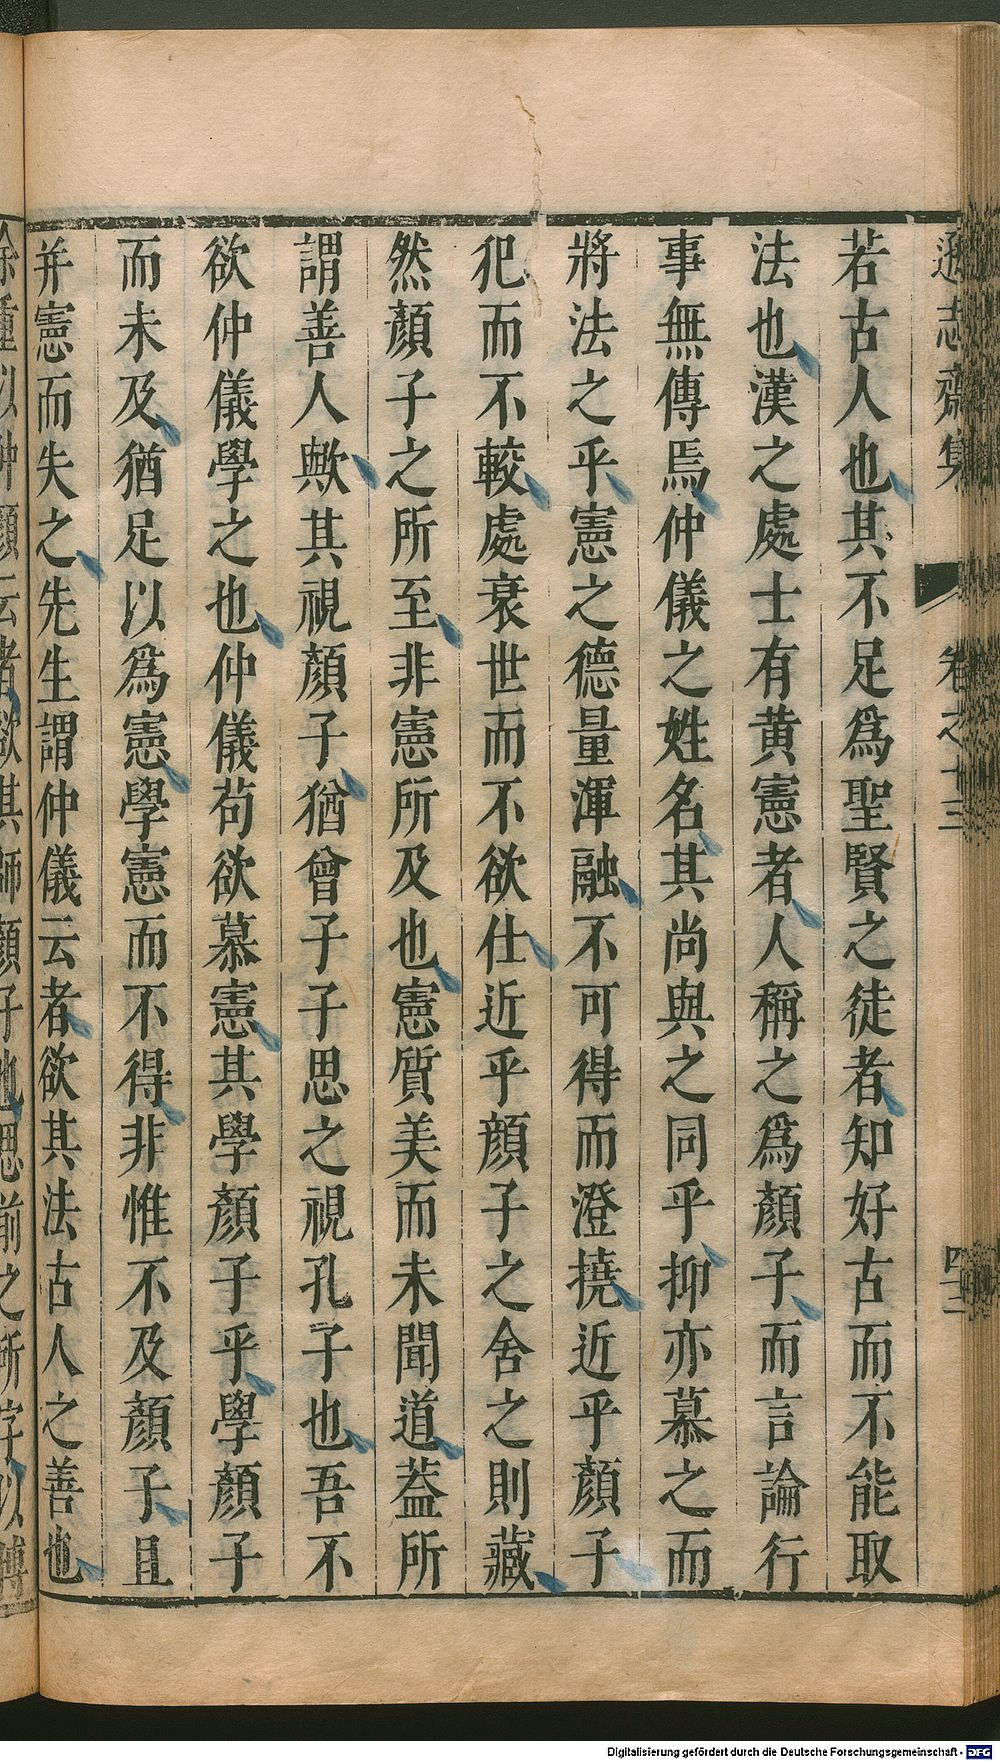 遜志齋集
卷之十三
四十二
若古人也其不足爲聖賢之徒者知好古而不能取
法也漢之處士有黄憲者人稱之爲顏子而言論行
事無傳焉仲儀之姓名其尚與之同乎抑亦慕之而
將法之乎憲之德量渾融不可得而澄撓近乎顏子
犯而不較處衰世而不欲仕近乎顔子之舍之則藏
然顏子之所至非憲所及也憲質美而未聞道葢所
謂善人歟其視顏子猶曾子子思之視孔子也吾不
欲仲儀學之也仲儀苟欲慕憲其學顏子乎學顏子
而未及猶足以爲憲學憲而不得非惟不及顏子且
并憲而失之先生謂仲儀云者欲其法古人之善也
Digitalisierung gefördert durch die Deutsche Forschungsgemeinschaft - DFG